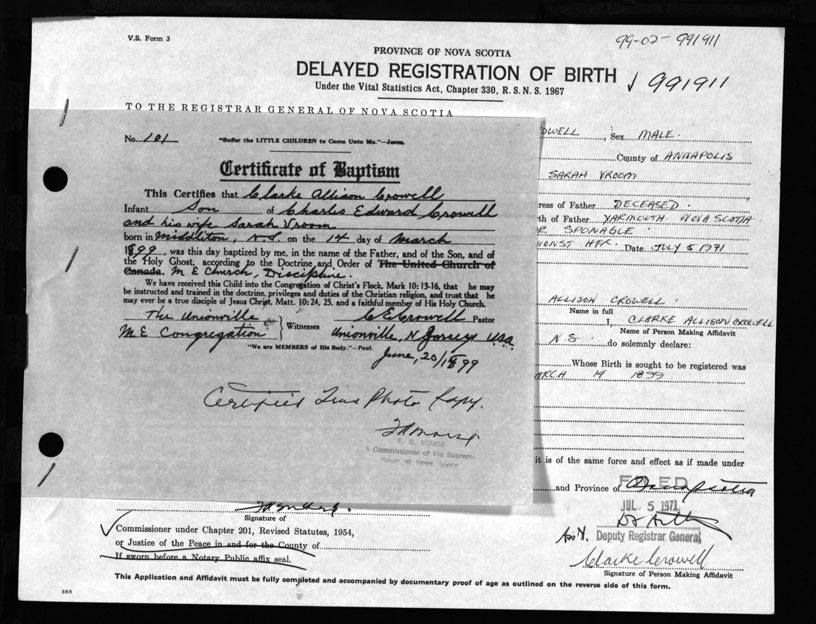 V.S. Form 3
99-02-991911
PROVINCE OF NOVA SCOTIA
DELAYED REGISTRATION OF BIRTH
991911
Under the Vital Statistics Act, Chapter 330, R. S. N. S. 1967
TO THE REGISTRAR GENERAL OF NOVA SCOTIA
No. 101 "Suffer the LITTLE CHILDREN to Come Unto Me."—Jesus.
Certificate of Baptism
This Certifies that Clarke Allison Crowell
Infant Son of Charles Edward Crowell
and his wife Sarah Vroom
born in Middleton, N.S. on the 14 day of March
1899, was this day baptized by me, in the name of the Father, and of the Son, and of
the Holy Ghost, according to the Doctrine and Order of The United Church of
Canada. M E Church, Discipline.
We have received this Child into the Congregation of Christ's Flock, Mark 10: 13-16, that he may
be instructed and trained in the doctrine, privileges and duties of the Christian religion, and trust that he
may ever be a true disciple of Jesus Christ, Matt. 10: 24, 25, and a faithful member of His Holy Church.
The Unionville C E Crowell Pastor
M E Congregation Witnesses Unionville, N Jersey, U.S.A.
"We are MEMBERS of His Body."—Paul.
June, 20/1899
Certified True Photo Copy.
F. R. MORSE
A Commissioner of the Supreme
Court of Nova Scotia
CROWELL, Sex MALE.
County of ANNAPOLIS
SARAH VROOM
ress of Father DECEASED.
th of Father YARMOUTH NOVA SCOTIA
R SPONAGLE
Date JULY 5 1971
ALLISON CROWELL
Name in full
I, CLARKE ALLISON CROWELL
Name of Person Making Affidavit
N.S. do solemnly declare:
Whose Birth is sought to be registered was
ARCH 14 1899
it is of the same force and effect as if made under
and Province of
FILED
JUL 5 1971
Deputy Registrar General
Clarke Crowell
Signature of Person Making Affidavit
Signature of
Commissioner under Chapter 201, Revised Statutes, 1954,
or Justice of the Peace in and for the County of
If sworn before a Notary Public affix seal.
This Application and Affidavit must be fully completed and accompanied by documentary proof of age as outlined on the reverse side of this form.